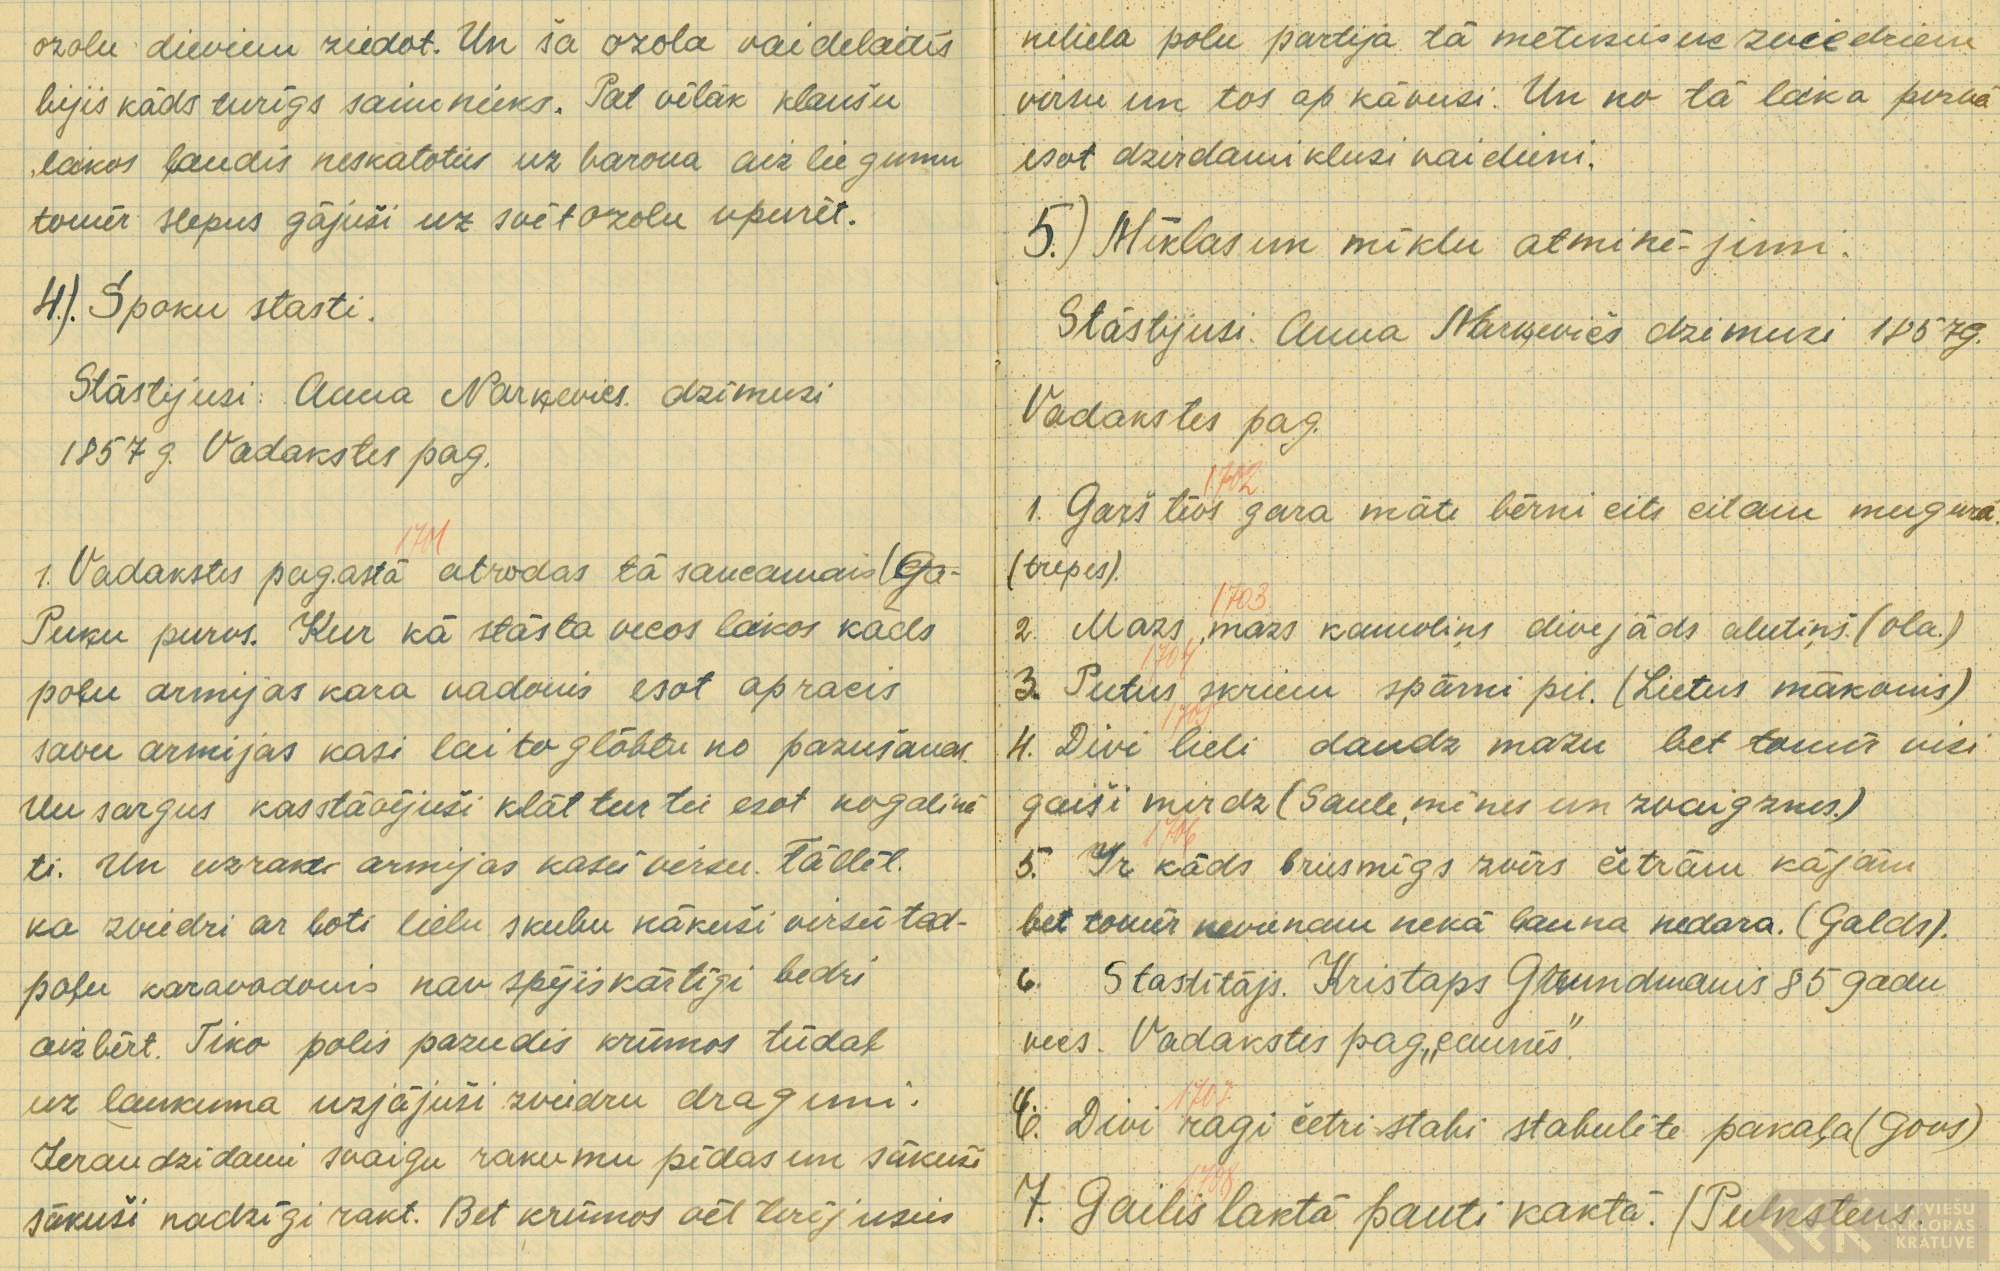 ozolu dieviem ziedot. Un ša ozola vaidelaitis
bijis kāds turīgs saimnieks. Pat vēlāk klaušu
laikos ļaudis neskatoties uz barona aizliegumu
tomēr slepus gājuši uz svēt ozolu upurēt.
4.). Spoku stasti.
Stāstijusi: Anna Narķevics. dzimusi
1857 g. Vadakstes pag.
1701
1. Vadakstes pagastā atrodas tā saucamais (Ga-
Puķu purvs. Kur kā stāsta vecos laikos kāds
poļu armijas kara vadonis esot apracis
savu armijas kasi lai to glābtu no pazušanas.
Un sargus kas stāvējuši klāt tur tie esot nogalinā
ti. Un uzrakti armijas kasei virsu. Tādēļ.
ka zviedri ar ļoti lielu skubu nākuši virsū tad-
poļu karavadonis nav spējis kārtīgi bedri
aizbērt. Tiko polis pazudis krūmos tūdaļ
uz laukuma uzjājuši zviedru dragumi.
Ieraudzidami svaigu rakumu pēdas un sākuši
sākuši nadzīgi rakt. Bet krūmos vēl bēējusies
neliela poļu partija tā metusies uz zviedriem
virsu un tos ap kāvusi. Un no tā laika purvā
esot dzirdami klusi vaidieni.
5.) Mīklas un mīklu atminē-jumi.
Stāstijusi. Anna Narķevičs dzimusi 1857g.
Vadakstes pag.
1702
1. Gaŗš tēvs gara māte bērni cits citam mugurā.
(trepes).
1703
2. Mazs, mazs kamoliņs divejāds alutiņš. (ola.)
1704
3. Putns skrien spārni pil. (Lietus mākonis)
1705
4. Divi lieli daudz mazu bet tomēr visi
gaiši mirdz (Saule, mēnes un zvaigznes.)
1706
5. Ir kāds briesmīgs zvērs četrām kājām
bet tomēr nevienam nekā ļauna nedara. (Galds).
6. Stastītājs. Kristaps Grundmanis 85 gadu
vecs. Vadakstes pag. „Caunēs".
1707
6. Divi ragi četri stabi stabulīte pakaļa (Govs)
1708
7. Gailis laktā pauti kaktā. (Pulkstens.
LATVIEŠU
FOLKLORAS
KRĀTUVE